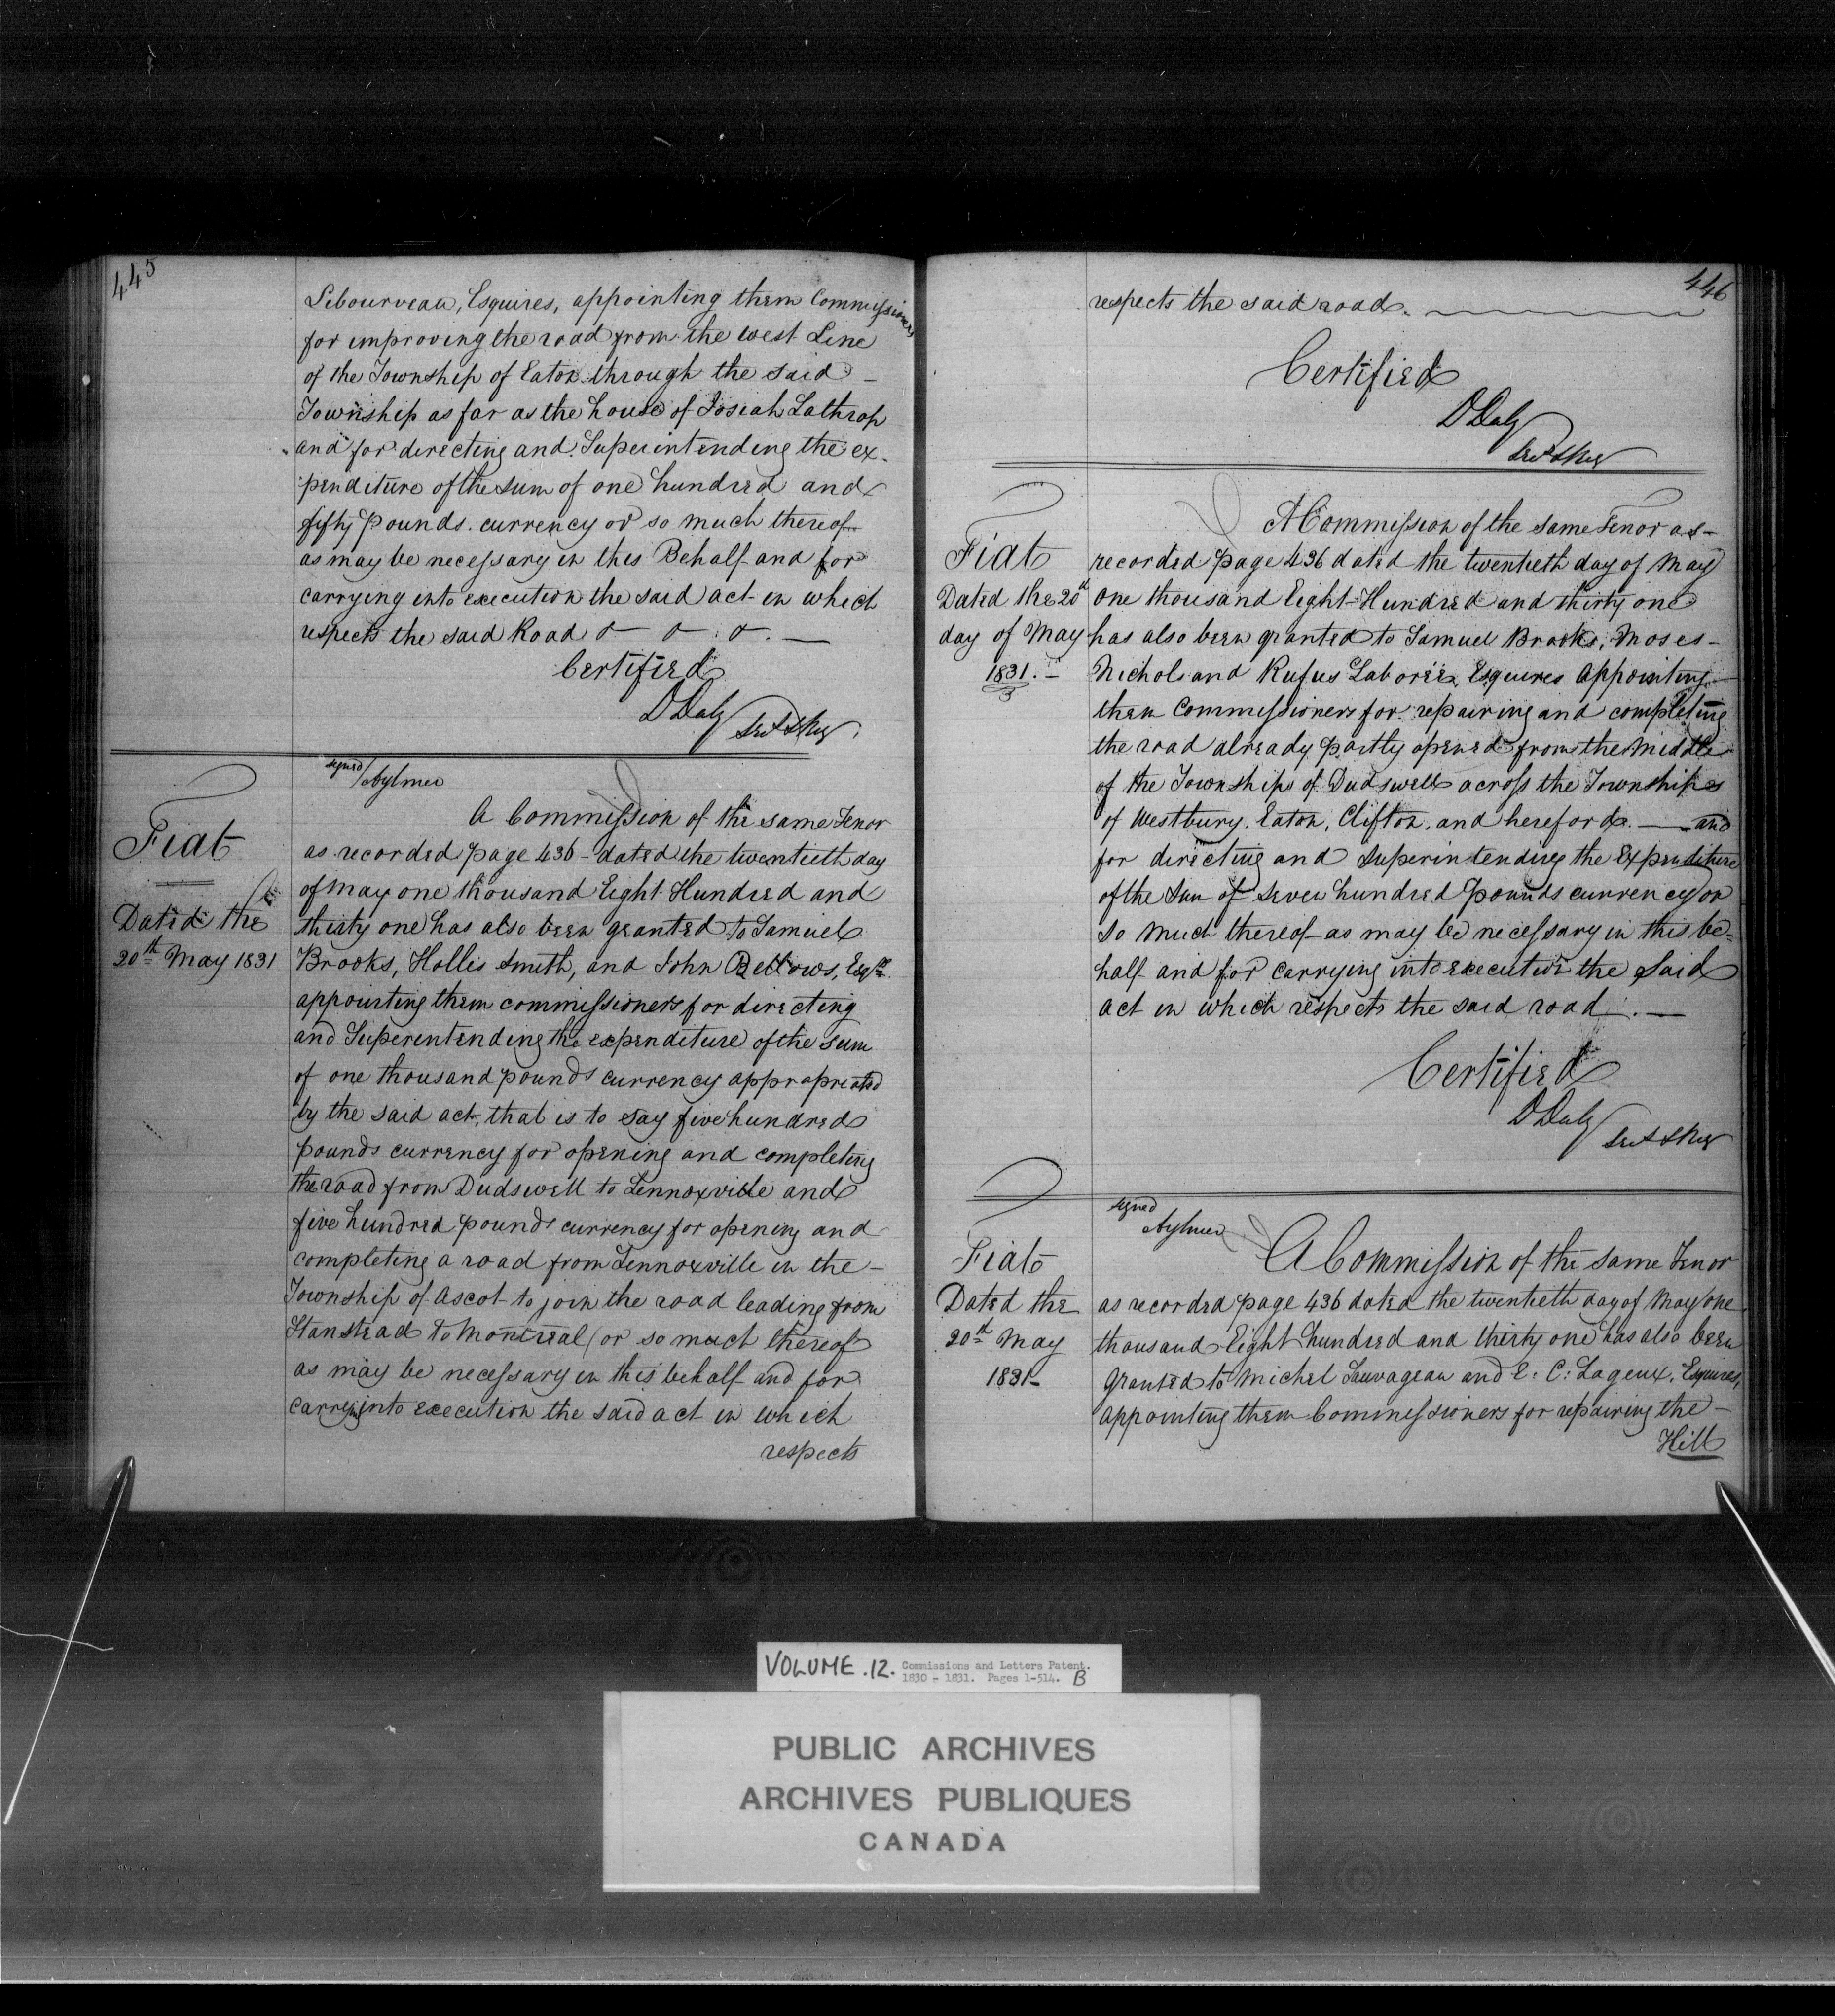 445
Lebourveau, Esquires, appointing them Commissioners
for improving the road from the west Line
of the Township of Eaton through the said -
Township as far as the house of Josiah Lathrop
and for directing and Superintending the ex-
penditure of the Sum of one hundred and
fifty pounds currency or so much thereof
as may be necessary in this Behalf and for
carrying into execution the said act in which
respects the said Road
Certified
D Daly
signed Aylmer
Fiat
Dated the
20th May 1831
A Commission of the same Tenor
as recorded page 436 - dated the twentieth day
of May one thousand Eight Hundred and
thirty one has also been granted to Samuel
Brooks, Hollis Smith, and John Bellows, Esqrs
appointing them commissioners for directing
and Superentending the expenditure of the sum
of one thousand pounds currency appropriated
by the said act, that is to say five hundred
pounds currency for opening and completing
the road from Dudswell to Lennoxville and
five hundred pounds currency for opening and
completing a road from Lennoxville in the -
Township of Ascot to join the road leading from
Stanstead to Montreal (or so much thereof
as may be necessary in this behalf and for
carrying into execution the said act in which
respects
446
respects the said road.
Certified
D Daly
Fiat
Dated the 20th
day of May
1831. -
A Commission of the same Tenor as -
recorded page 436 dated the twentieth day of May
One thousand Eight Hundred and thirty one
has also been granted to Samuel Brooks, Moses -
Nichols and Rufus Laboree, Esquires Appointing
them Commissioners for repairing and completing
the road already partly opened from the Middle
of the Township of Dudswell across the Townships
of Westbury, Eaton, Clifton, and hereford. - and
for directing and Superintending the Expenditure
of the Sum of Seven hundred Pounds currency or
so much thereof as may be necessary in this be=
half and for carrying into execution the said
act in which respects the said road. -
Certified
D Daly
signed
Aylmer
Fiat
Dated the
20th May
1831 -
A Commission of the same Tenor
as recorded page 436 dated the twentieth day of May one
thousand Eight hundred and thirty one has also been
granted to Michel Sauvageau and E. C. Lageux, Esquires,
appointing them Commissioners for repairing the -
Hill
VOLUME .12. Commissions and Letters Patent.
1830 - 1831. Pages 1-514. B
PUBLIC ARCHIVES
ARCHIVES PUBLIQUES
CANADA